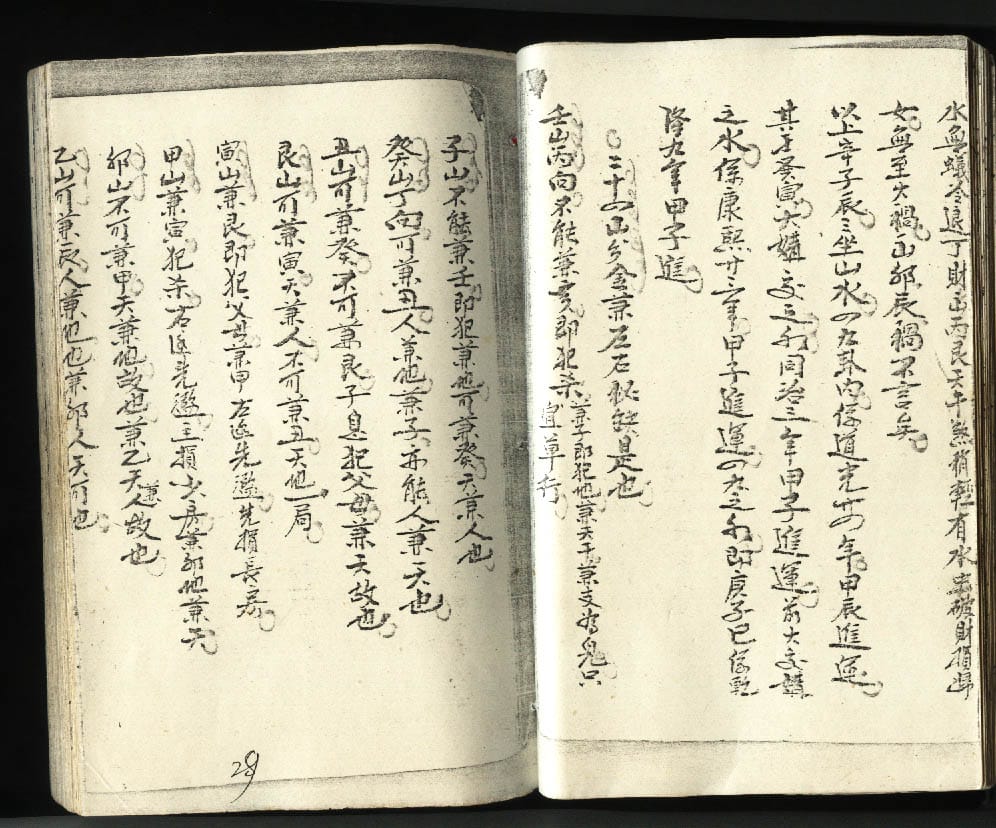 水無蟻冷退丁財山丙艮天干煞稍輕有水出破財損婦
女無至大禍山卯辰禍不言矣
以上辛子辰三坐山水四九卦內係道光廿四年甲辰進運
其子癸寅大媾交三卦同治三年甲子進運前大交媾
之水係康熙廿三年甲子進運四九之卦即庚子巳係乾
隆九年甲子進
二十四山分金兼左右秘訣是也
壬山丙向不能兼亥即犯杀兼子即犯他兼天干兼支為鬼只
宜單行
子山不能兼壬即犯兼他可兼癸天兼人也
癸山子向可兼丑人兼他兼子不能人兼天也
丑山可兼癸不可兼艮子息犯父母兼天故也
艮山可兼寅天兼人不可兼丑天他一局
寅山兼艮即犯父母兼甲左邊先濫先損長房
甲山兼寅犯杀右邊先濫三損少房兼卯他兼天
卯山不可兼甲天兼他故也兼乙天兼人故也
乙山可兼辰人兼他也兼卯人天可也
29